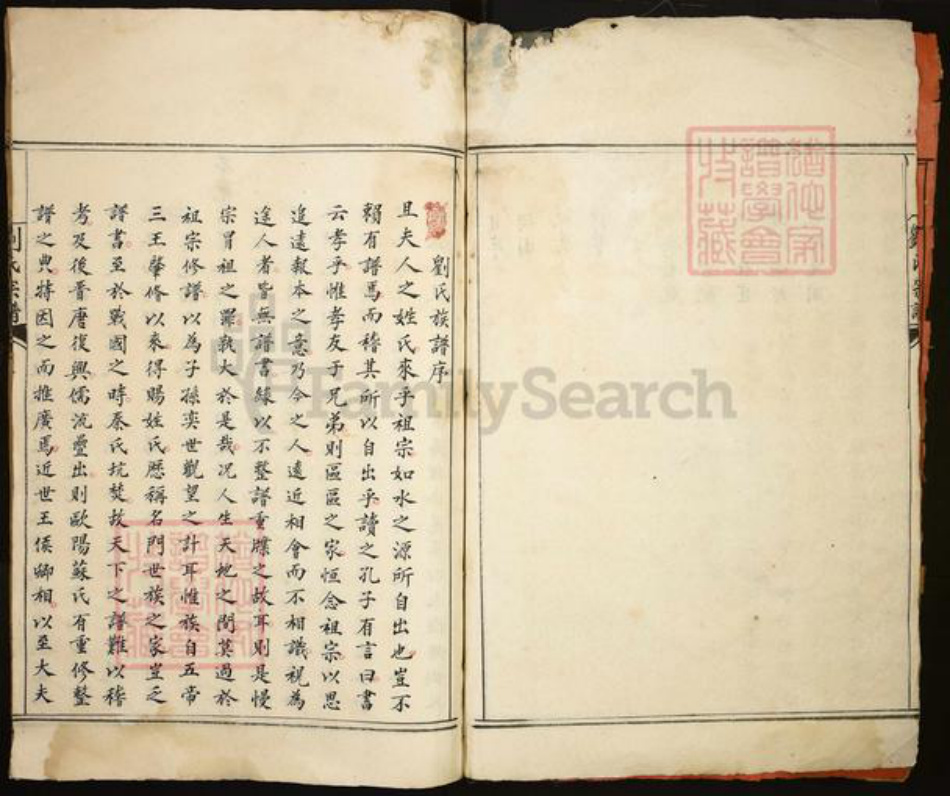 劉氏宗譜
劉氏族譜序
且夫人之姓氏來乎祖宗如水之源所自出也豈不
賴有譜焉而稽其所以自出乎讀之孔子有言曰書
云孝乎惟孝友于兄弟則區區之家恒念祖宗以思
追遠報本之意乃今之人遠近相會而不相識視為
途人者皆無譜書緣以不整譜重牒之故耳則是慢
宗冒祖之罪孰大於是哉况人生天地之間莫過於
祖宗修譜以為子孫奕世觀望之計耳惟族自五帝
三王肇修以來得賜姓氏歷稱名門世族之家豈乏
譜書至於戰國之時秦氏坑焚故天下之譜難以稽
考及後晉唐復興儒流疊出則歐陽蘇氏有重修整
譜之典特因之而推廣焉近世王侯卿相以至大夫
劉氏宗譜
FamilySearch